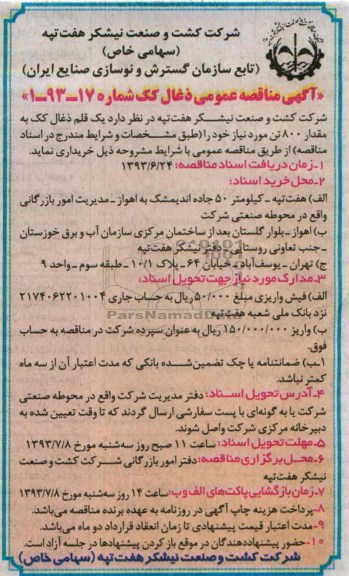 شرکت کشت و صنعت نیشکر هفت‌تپه
(سهامی خاص)
(تابع سازمان گسترش و نوسازی صنایع ایران)
«آگهی مناقصه عمومی ذغال کک شماره ۱۷-۹۳-۱»
شرکت کشت و صنعت نیشکر هفت‌تپه در نظر دارد یک قلم ذغال کک به
مقدار ۸۰۰ تن مورد نیاز خود را (طبق مشخصات و شرایط مندرج در اسناد
مناقصه) از طریق مناقصه عمومی با شرایط مشروحه ذیل خریداری نماید.
۱-زمان دریافت اسناد مناقصه: ۱۳۹۳/۶/۲۴
۲-محل خرید اسناد:
الف) هفت‌تپه - کیلومتر ۵۰ جاده اندیمشک به اهواز - مدیریت امور بازرگانی
واقع در محوطه صنعتی شرکت
ب) اهواز - بلوار گلستان بعد از ساختمان مرکزی سازمان آب و برق خوزستان
- جنب تعاونی روستایی - دفتر نیشکر هفت‌تپه
ج) تهران - یوسف‌آباد - خیابان ۶۴ - پلاک ۱۰/۱ - طبقه سوم - واحد ۹
۳-مدارک مورد نیاز جهت تحویل اسناد:
الف) فیش واریزی مبلغ ۵۰/۰۰۰ ریال به حساب جاری ۲۱۷۴۰۶۲۲۰۱۰۰۴
نزد بانک ملی شعبه هفت‌تپه
ب) واریز ۱۵۰/۰۰۰/۰۰۰ ریال به عنوان سپرده شرکت در مناقصه به حساب
فوق.
۱-ب) ضمانتنامه یا چک تضمین‌شده بانکی که مدت اعتبار آن از سه ماه
کمتر نباشد.
۴-آدرس تحویل اسناد: دفتر مدیریت شرکت واقع در محوطه صنعتی
شرکت یا به گونه‌ای با پست سفارشی ارسال گردند که تا وقت تعیین شده به
دبیرخانه مرکزی شرکت واصل شوند.
۵-مهلت تحویل اسناد: ساعت ۱۱ صبح روز سه‌شنبه مورخ ۱۳۹۳/۷/۸
۶-محل برگزاری مناقصه: دفتر امور بازرگانی شرکت کشت و صنعت
نیشکر هفت‌تپه
۷-زمان بازگشایی پاکت‌های الف و ب: ساعت ۱۴ روز سه‌شنبه مورخ ۱۳۹۳/۷/۸
۸-پرداخت هزینه چاپ آگهی در روزنامه به عهده برنده مناقصه می‌باشد.
۹-مدت اعتبار قیمت پیشنهادی تا زمان انعقاد قرارداد دو ماه می‌باشد.
۱۰-حضور پیشنهاددهندگان در موقع باز کردن پیشنهادها در جلسه آزاد است.
شرکت کشت و صنعت نیشکر هفت‌تپه (سهامی خاص)